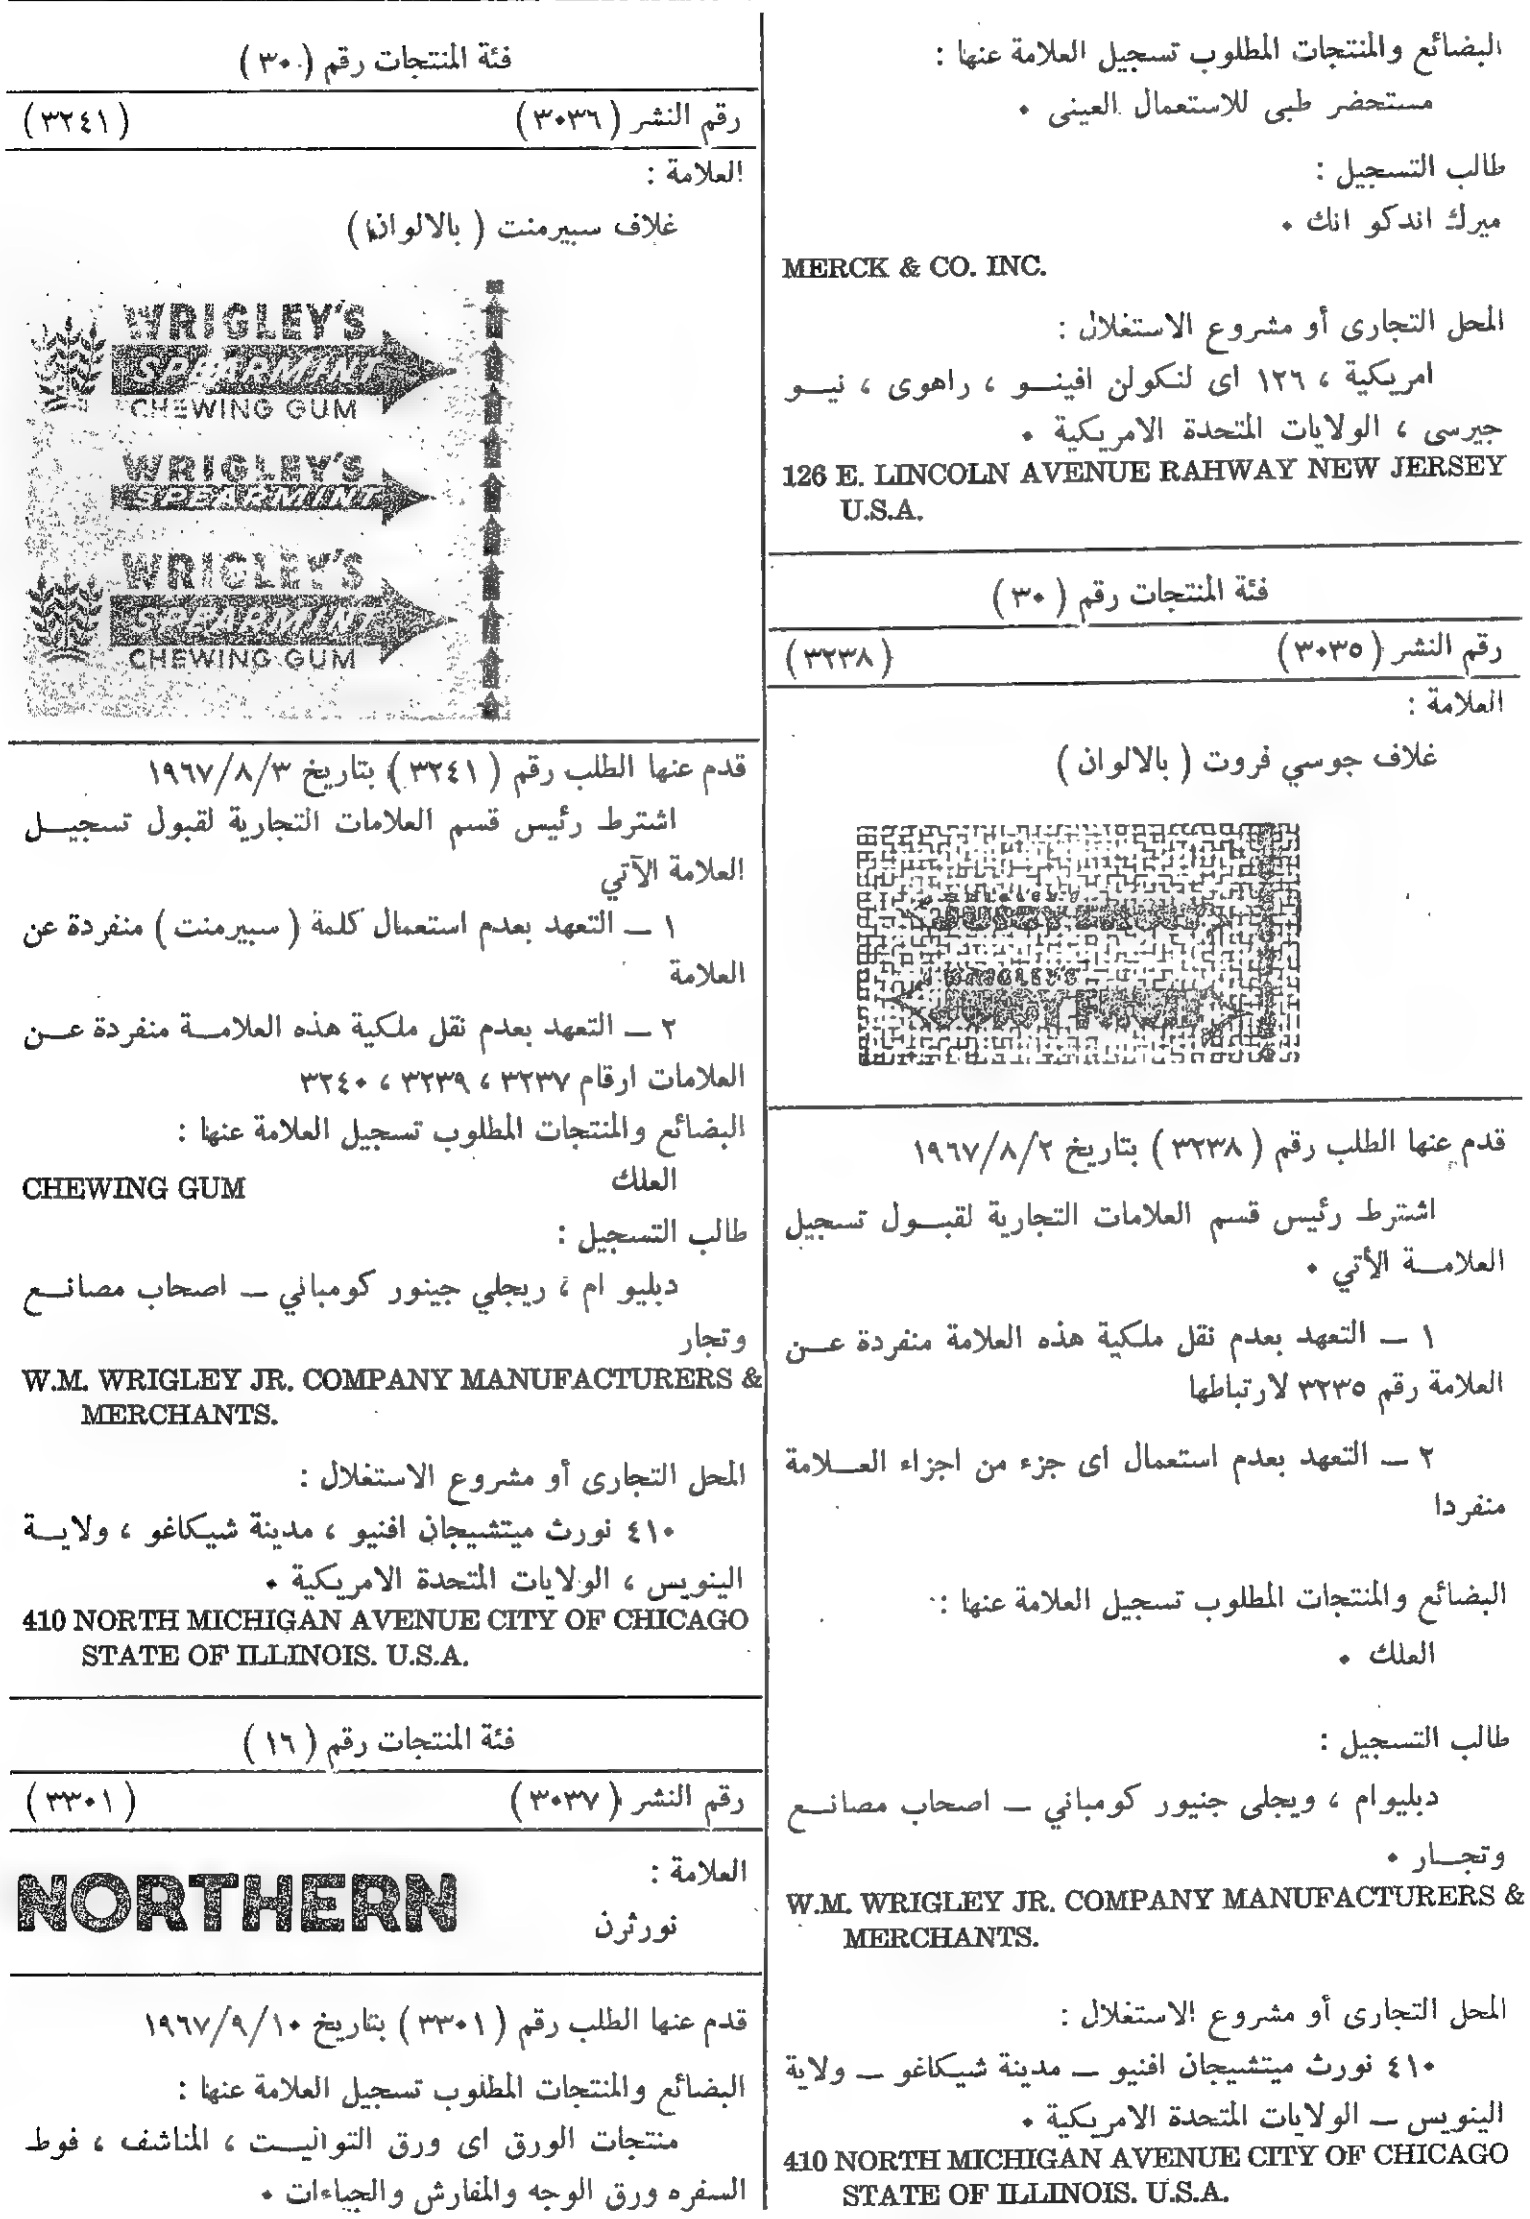 البضائع والمنتجات المطلوب تسجيل العلامة عنها :
مستحضر طبى للاستعمال العينى ٠
طالب التسجيل :
ميرك اندكو انك ٠
MERCK & CO. INC.
المحل التجارى أو مشروع الاستغلال :
امريكية ، ١٢٦ اى لنكولن افينــو ، راهوى ، نيــو
جيرسى ، الولايات المتحدة الامريكية ٠
126 E. LINCOLN AVENUE RAHWAY NEW JERSEY
U.S.A.
فئة المنتجات رقم ( ٣٠ )
رقم النشر ( ٣٠٣٥ ) ( ٣٢٣٨ )
العلامة :
غلاف جوسي فروت ( بالالوان )
WRIGLEY'S
قدم عنها الطلب رقم ( ٣٢٣٨ ) بتاريخ ١٩٦٧/٨/٢
اشترط رئيس قسم العلامات التجارية لقبــول تسجيل
العلامــة الأتي ٠
١ ــ التعهد بعدم نقل ملكية هذه العلامة منفردة عــن
العلامة رقم ٣٢٣٥ لارتباطها
٢ ــ التعهد بعدم استعمال اى جزء من اجزاء العــلامة
منفردا
البضائع والمنتجات المطلوب تسجيل العلامة عنها :
العلك ٠
طالب التسجيل :
دبليوام ، ويجلى جنيور كومباني ــ اصحاب مصانــع
وتجــار ٠
W.M. WRIGLEY JR. COMPANY MANUFACTURERS &
MERCHANTS.
المحل التجارى أو مشروع الاستغلال :
٤١٠ نورث ميتشيجان افنيو ــ مدينة شيكاغو ــ ولاية
الينويس ــ الولايات المتحدة الامريكية ٠
410 NORTH MICHIGAN AVENUE CITY OF CHICAGO
STATE OF ILLINOIS. U.S.A.
فئة المنتجات رقم ( ٣٠ )
رقم النشر ( ٣٠٣٦ ) ( ٣٢٤١ )
العلامة :
غلاف سبيرمنت ( بالالوان )
WRIGLEY'S
SPEARMINT
CHEWING GUM
WRIGLEY'S
SPEARMINT
WRIGLEY'S
SPEARMINT
CHEWING GUM
قدم عنها الطلب رقم ( ٣٢٤١ ) بتاريخ ١٩٦٧/٨/٣
اشترط رئيس قسم العلامات التجارية لقبول تسجيــل
العلامة الآتي
١ ــ التعهد بعدم استعمال كلمة ( سبيرمنت ) منفردة عن
العلامة
٢ ــ التعهد بعدم نقل ملكية هذه العلامــة منفردة عــن
العلامات ارقام ٣٢٣٧ ، ٣٢٣٩ ، ٣٢٤٠
البضائع والمنتجات المطلوب تسجيل العلامة عنها :
العلك CHEWING GUM
طالب التسجيل :
دبليو ام ، ريجلي جينور كومباني ــ اصحاب مصانــع
وتجار
W.M. WRIGLEY JR. COMPANY MANUFACTURERS &
MERCHANTS.
المحل التجارى أو مشروع الاستغلال :
٤١٠ نورث ميتشيجان افنيو ، مدينة شيكاغو ، ولايــة
الينويس ، الولايات المتحدة الامريكية ٠
410 NORTH MICHIGAN AVENUE CITY OF CHICAGO
STATE OF ILLINOIS. U.S.A.
فئة المنتجات رقم ( ١٦ )
رقم النشر ( ٣٠٣٧ ) ( ٣٣٠١ )
العلامة :
نورثرن
NORTHERN
قدم عنها الطلب رقم ( ٣٣٠١ ) بتاريخ ١٩٦٧/٩/١٠
البضائع والمنتجات المطلوب تسجيل العلامة عنها :
منتجات الورق اى ورق التواليــت ، المناشف ، فوط
السفره ورق الوجه والمفارش والجياءات ٠